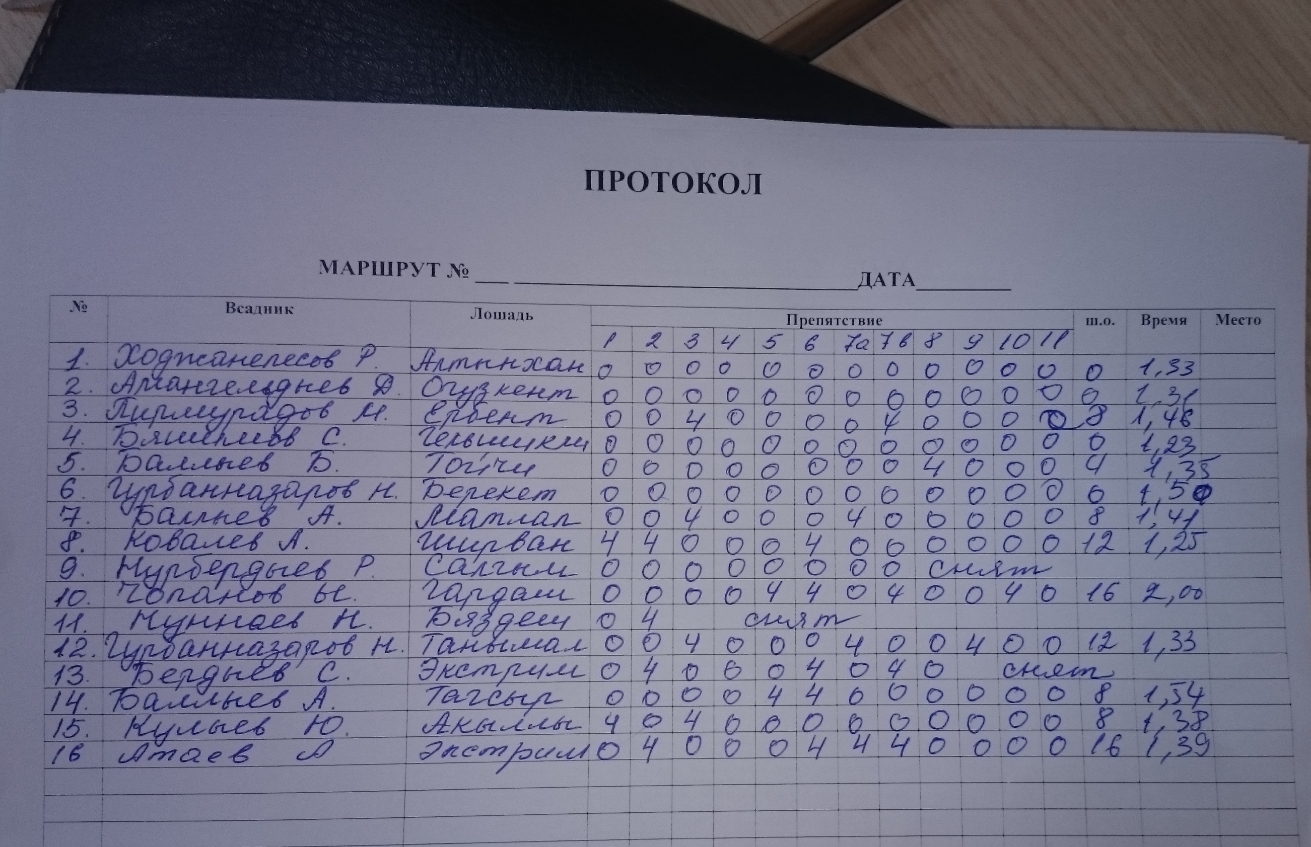 ПРОТОКОЛ
МАРШРУТ № ДАТА
№ Всадник Лошадь Препятствие ш.о. Время Место
1 2 3 4 5 6 7а 7в 8 9 10 11
1. Ходжанепесов Р. Алтынхан 0 0 0 0 0 0 0 0 0 0 0 0 0 1,33
2. Амангельдыев Д. Огузкент 0 0 0 0 0 0 0 0 0 0 0 0 0 1,31
3. Пирмурадов М. Ербент 0 0 4 0 0 0 0 4 0 0 0 0 8 1,46
4. С. 0 0 0 0 0 0 0 0 0 0 0 0 0 1,23
5. Баллыев Б. Тойчи 0 0 0 0 0 0 0 0 4 0 0 0 4 1,35
6. Гурбанназаров Н. Берекет 0 0 0 0 0 0 0 0 0 0 0 0 0 1,50
7. Баллыев А. Матлал 0 0 4 0 0 0 4 0 0 0 0 0 8 1,41
8. Ковалев А. Ширван 4 4 0 0 0 4 0 0 0 0 0 0 12 1,25
9. Нурбердыев Р. Салгым 0 0 0 0 0 0 0 0 снят
10. Чопанов Ы. Гардаш 0 0 0 0 4 4 0 4 0 0 4 0 16 2,00
11. Нуннаев Н. Бяздеш 0 4 снят
12. Гурбанназаров Н. Танымал 0 0 4 0 0 0 4 0 0 4 0 0 12 1,33
13. Бердыев С. Экстрим 0 4 0 0 0 4 0 4 0 снят
14. Баллыев А. Тагсыр 0 0 0 0 4 4 0 0 0 0 0 0 8 1,54
15. Кулыев Ю. Акыллы 4 0 4 0 0 0 0 0 0 0 0 0 8 1,38
16 Атаев А Экстрим 0 4 0 0 0 4 4 4 0 0 0 0 16 1,39